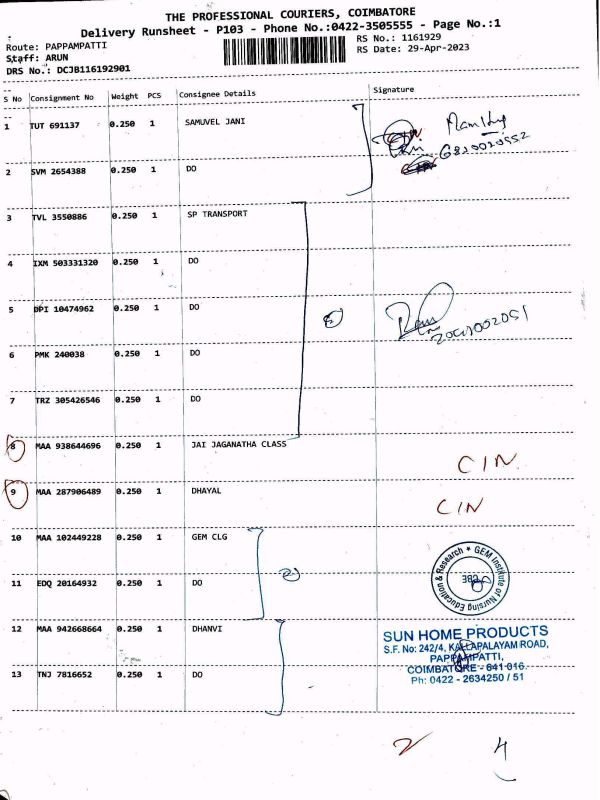 THE PROFESSIONAL COURIERS, COIMBATORE
Delivery Runsheet - P103 - Phone No.:0422-3505555 - Page No.:1
Route: PAPPAMPATTI RS No.: 1161929
Staff: ARUN RS Date: 29-Apr-2023
DRS No.: DCJB116192901
S No Consignment No Weight PCS Consignee Details Signature
1 TUT 691137 0.250 1 SAMUVEL JANI
2 SVM 2654388 0.250 1 DO
3 TVL 3550886 0.250 1 SP TRANSPORT
4 IXM 503331320 0.250 1 DO
5 DPI 10474962 0.250 1 DO
6 PMK 240038 0.250 1 DO
7 TRZ 305426546 0.250 1 DO
8 MAA 938644696 0.250 1 JAI JAGANATHA CLASS C/N
9 MAA 287906489 0.250 1 DHAYAL C/N
10 MAA 102449228 0.250 1 GEM CLG
GEM Institute of Nursing Education & Research
11 EDQ 20164932 0.250 1 DO
12 MAA 942668664 0.250 1 DHANVI
SUN HOME PRODUCTS
S.F. No: 242/4, KALLAPALAYAM ROAD,
PAPPAMPATTI,
COIMBATORE - 641 016.
Ph: 0422 - 2634250 / 51
13 TNJ 7816652 0.250 1 DO
2 4